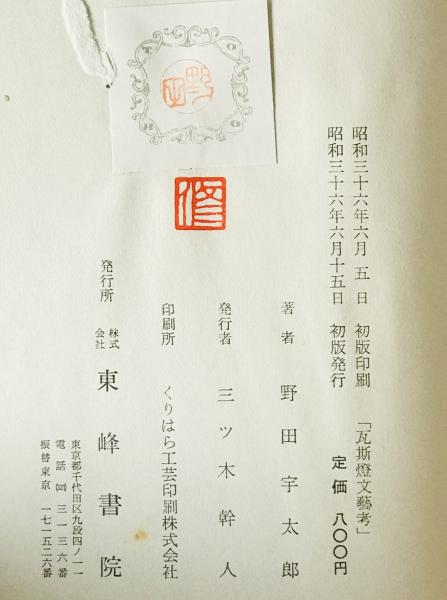 昭和三十六年六月五日 初版印刷 「瓦斯燈文藝考」
昭和三十六年六月十五日 初版発行 定価 八〇〇円
著者 野田宇太郎
発行者 三ツ木幹人
印刷所 くりはら工芸印刷株式会社
発行所 株式会社 東峰書院
東京都千代田区九段四ノ一一
電話 三一三六番
振替東京 一七一五二六番
修
野田